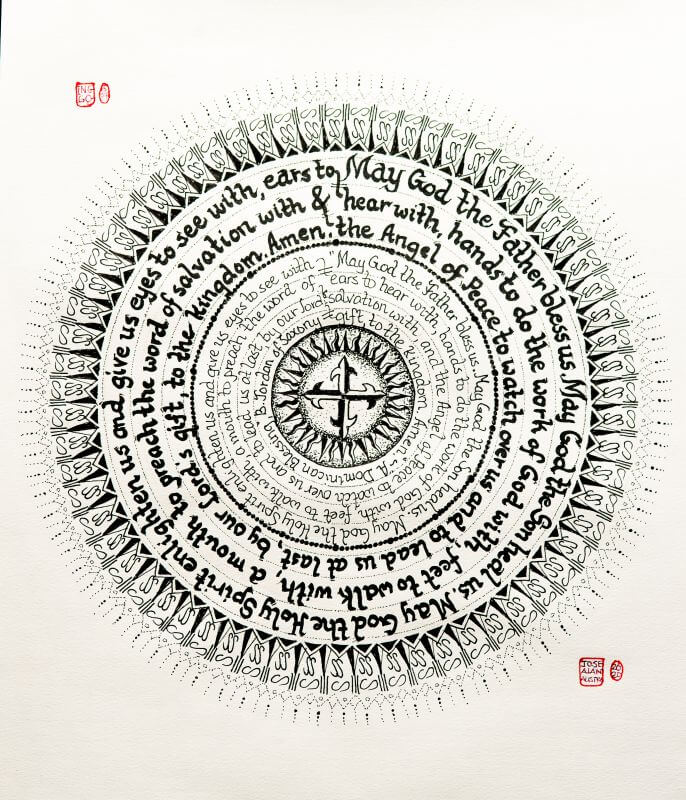 May God the Father bless us. May God the Son heal us. May God the Holy Spirit enlighten us and give us eyes to see with, ears to
hear with, hands to do the work of God with feet to walk with a mouth to preach the word of salvation with &
the Angel of Peace to watch over us and to lead us at last by our Lord's gift, to the Kingdom. Amen.
"May God the Father bless us. May God the Son heal us. May God the Holy Spirit enlighten us and give us eyes to see with
ears to hear with, hands to do the work of God with, feet to walk with a mouth to preach the word of
salvation with and the Angel of Peace to watch over us and to lead us at last by our Lord's
gift to the Kingdom. Amen ~ A Dominican Blessing B. Jordan of Saxony
JOSE
ALAN